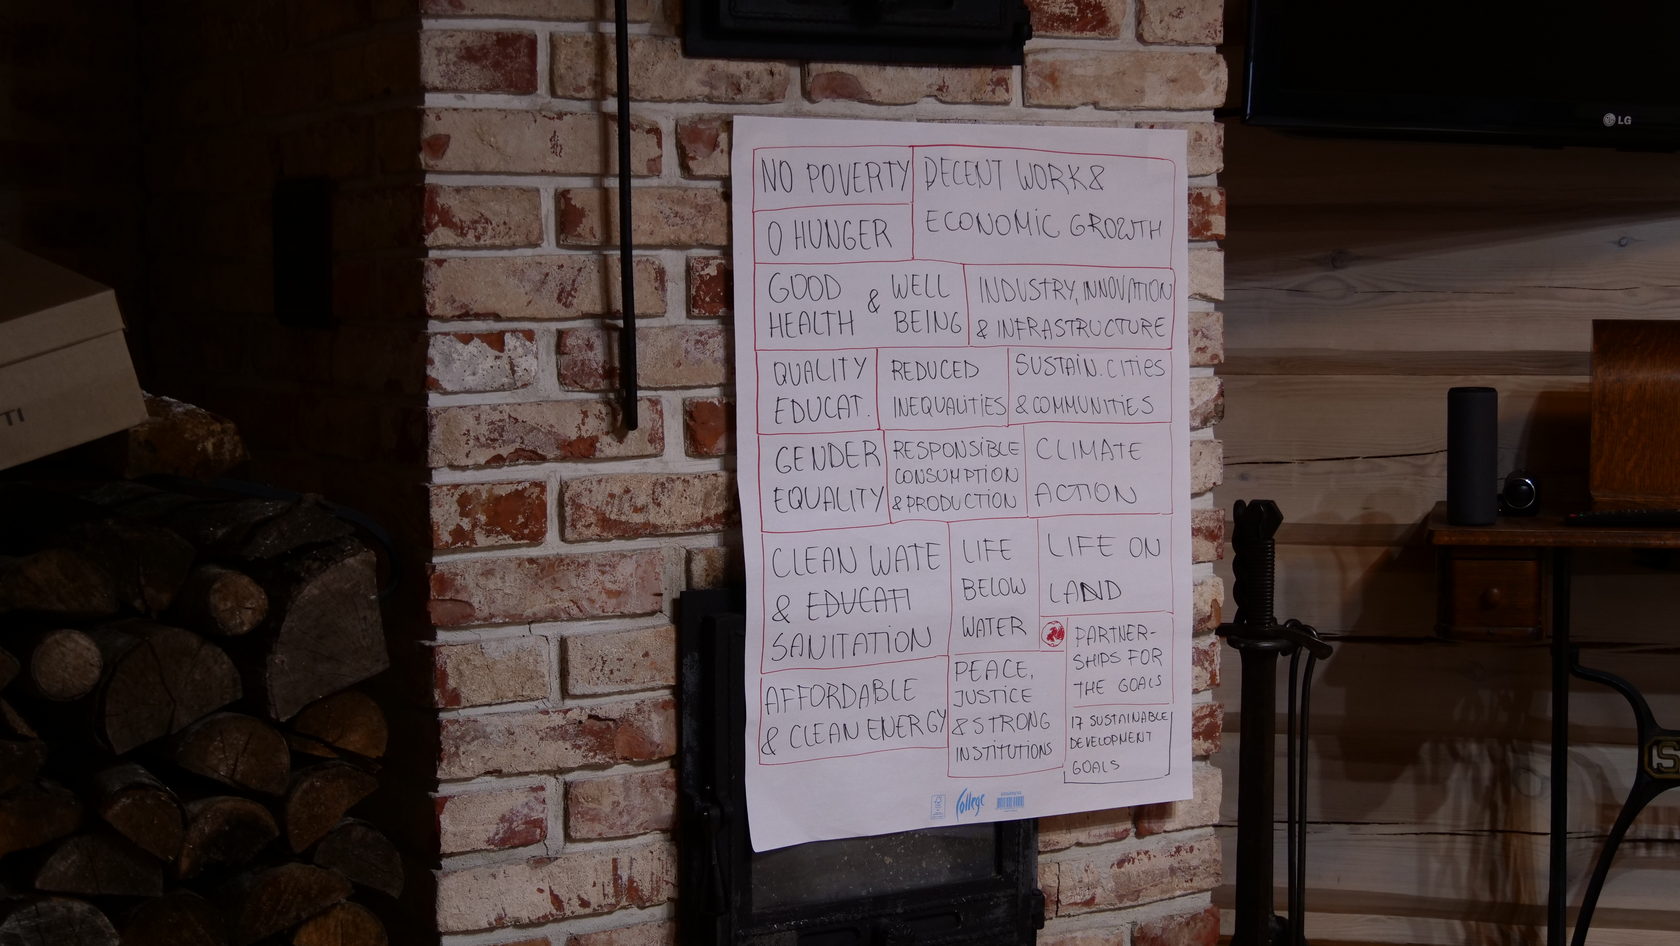 NO POVERTY
DECENT WORK &
ECONOMIC GROWTH
0 HUNGER
GOOD
HEALTH
&
WELL
BEING
INDUSTRY, INNOVATION
& INFRASTRUCTURE
QUALITY
EDUCAT.
REDUCED
INEQUALITIES
SUSTAIN. CITIES
& COMMUNITIES
GENDER
EQUALITY
RESPONSIBLE
CONSUMPTION
& PRODUCTION
CLIMATE
ACTION
CLEAN WATE
& EDUCATI
SANITATION
LIFE
BELOW
WATER
LIFE ON
LAND
AFFORDABLE
& CLEAN ENERGY
PEACE,
JUSTICE
& STRONG
INSTITUTIONS
PARTNER-
SHIPS FOR
THE GOALS
17 SUSTAINABLE
DEVELOPMENT
GOALS
College
LG
TI
S